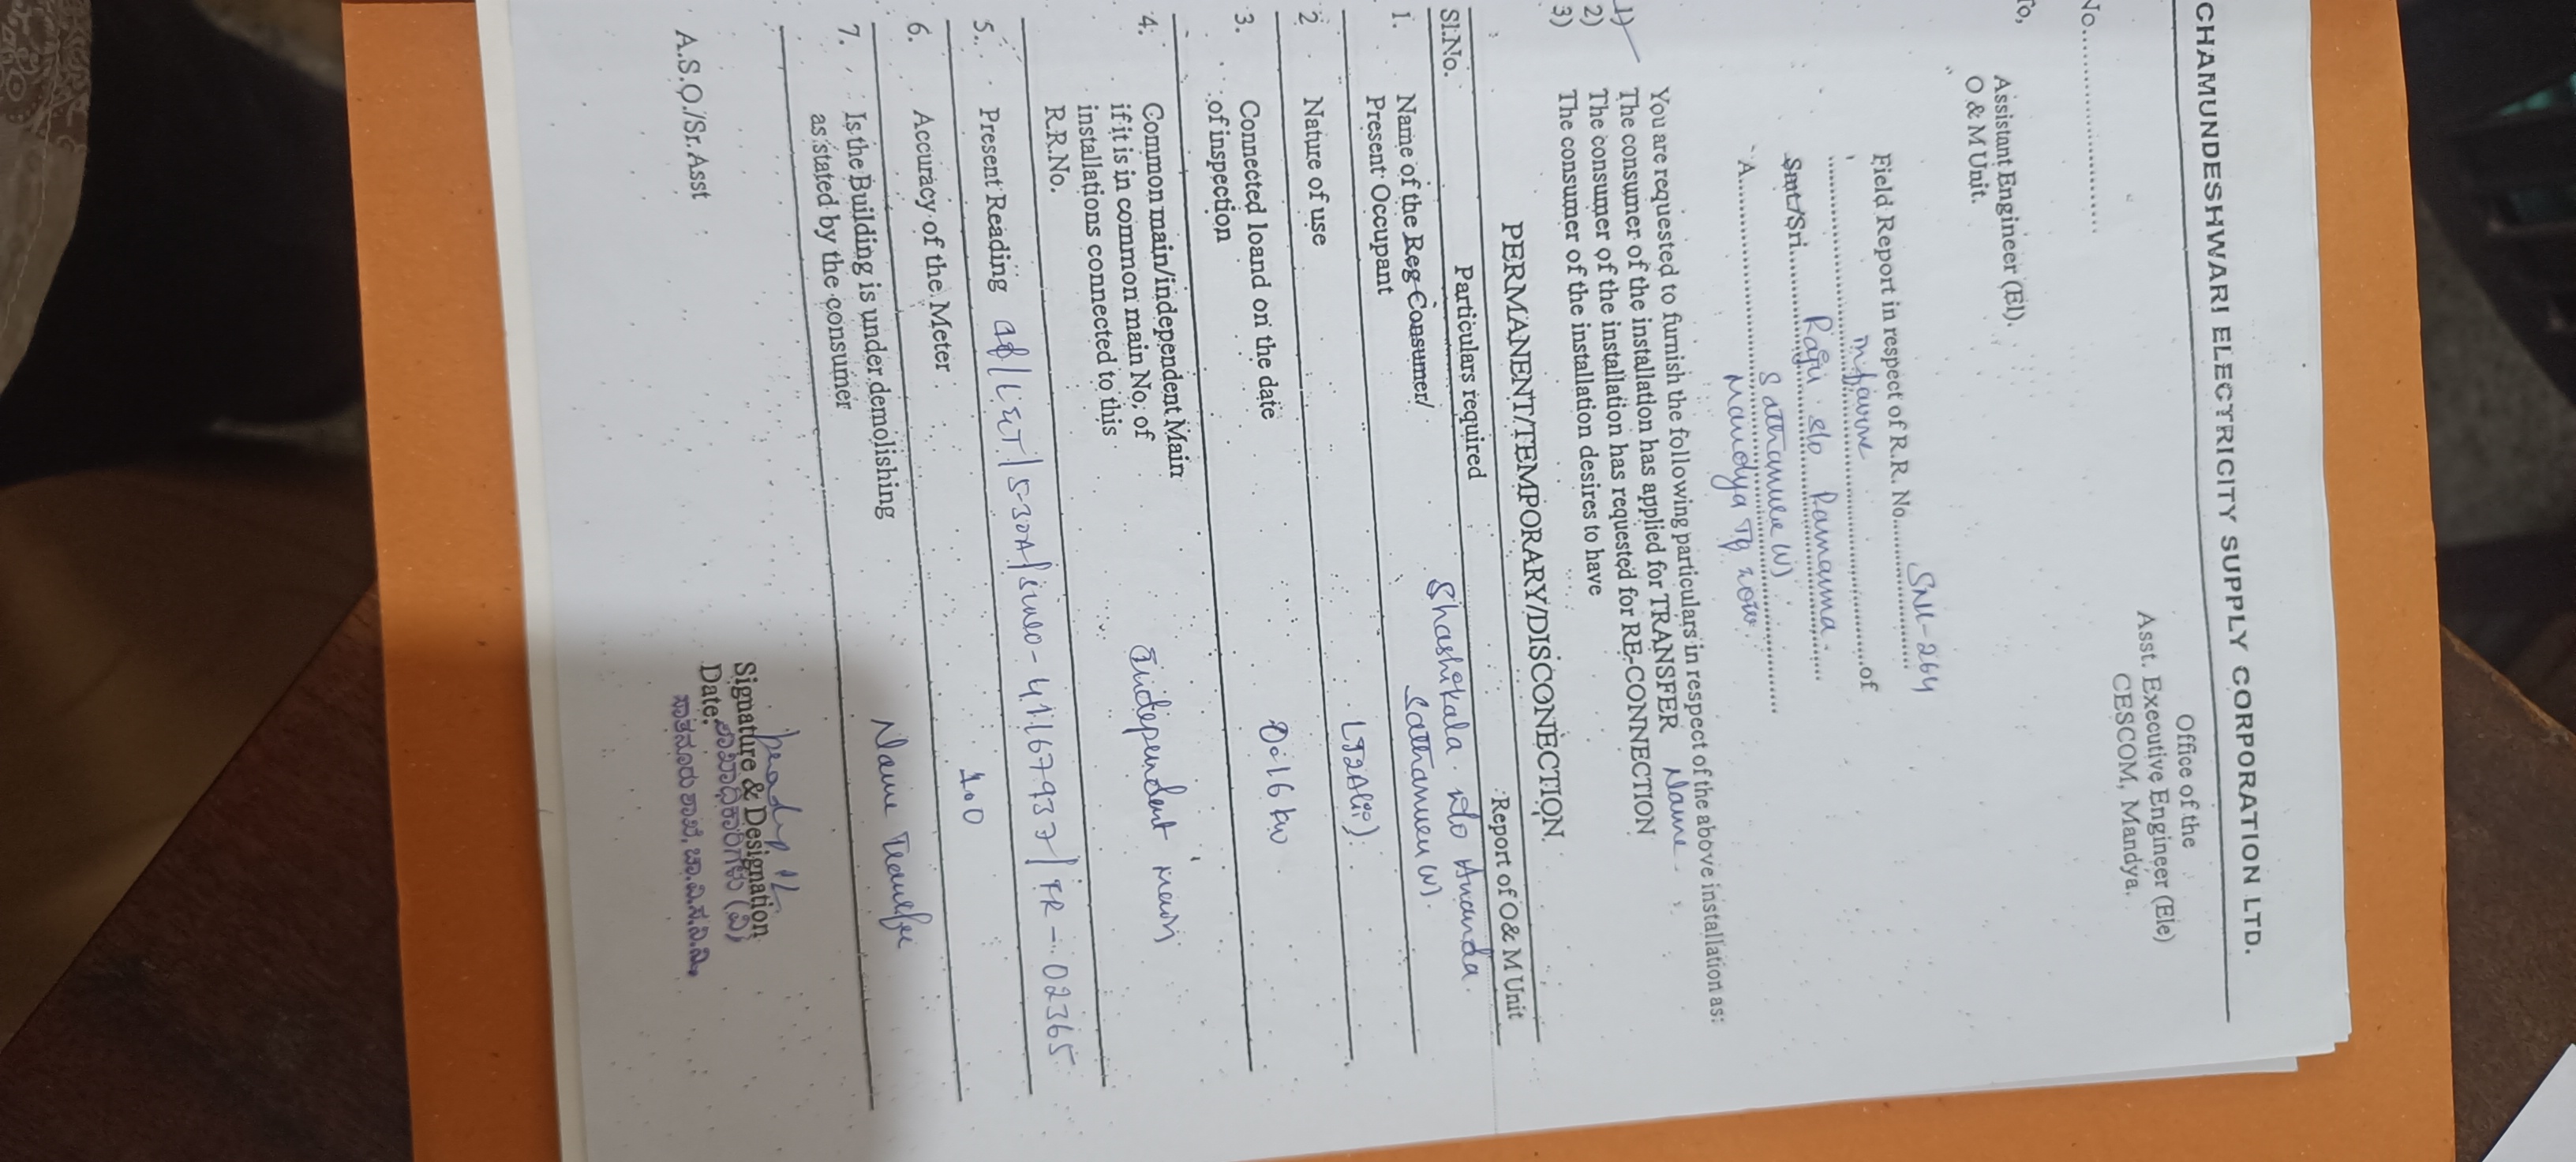 CHAMUNDESHWARI ELECTRICITY SUPPLY CORPORATION LTD.
Office of the
Asst. Executive Engineer (Ele)
CESCOM, Mandya.
No...................
To,
Assistant Engineer (El).
O & M Unit.
Field Report in respect of R.R. No. SNU-264
of
Smt/Sri. Raju S/o Pannamma
A. Sathanuru (V)
Mandya Tq
You are requested to furnish the following particulars in respect of the above installation as:
1) The consumer of the installation has applied for TRANSFER Name
2) The consumer of the installation has requested for RE-CONNECTION
3) The consumer of the installation desires to have
PERMANENT/TEMPORARY/DISCONECTION.
Sl.No. Particulars required Report of O & M Unit
1. Name of the Reg Consumer/ Shashikala W/o Ananda.
Present Occupant Sathanuru (V).
2 Nature of use
3. Connected loand on the date 0.16 kw
of inspection
4. Common main/independent Main Independent main
if it is in common main No, of
installations connected to this
R.R.No.
5. Present Reading 5-30A/ 41167937/FR-02365
6. Accuracy of the Meter 100
7. Is the Building is under demolishing Name Transfer
as stated by the consumer
Signature & Designation
A.S.O./Sr. Asst Date:
ಶಾಖಾಧಿಕಾರಿಗಳು (ವಿ)
ಸಾತನೂರು ಶಾಖೆ, ಚಾ.ವಿ.ಸ.ನಿ.ನಿ,